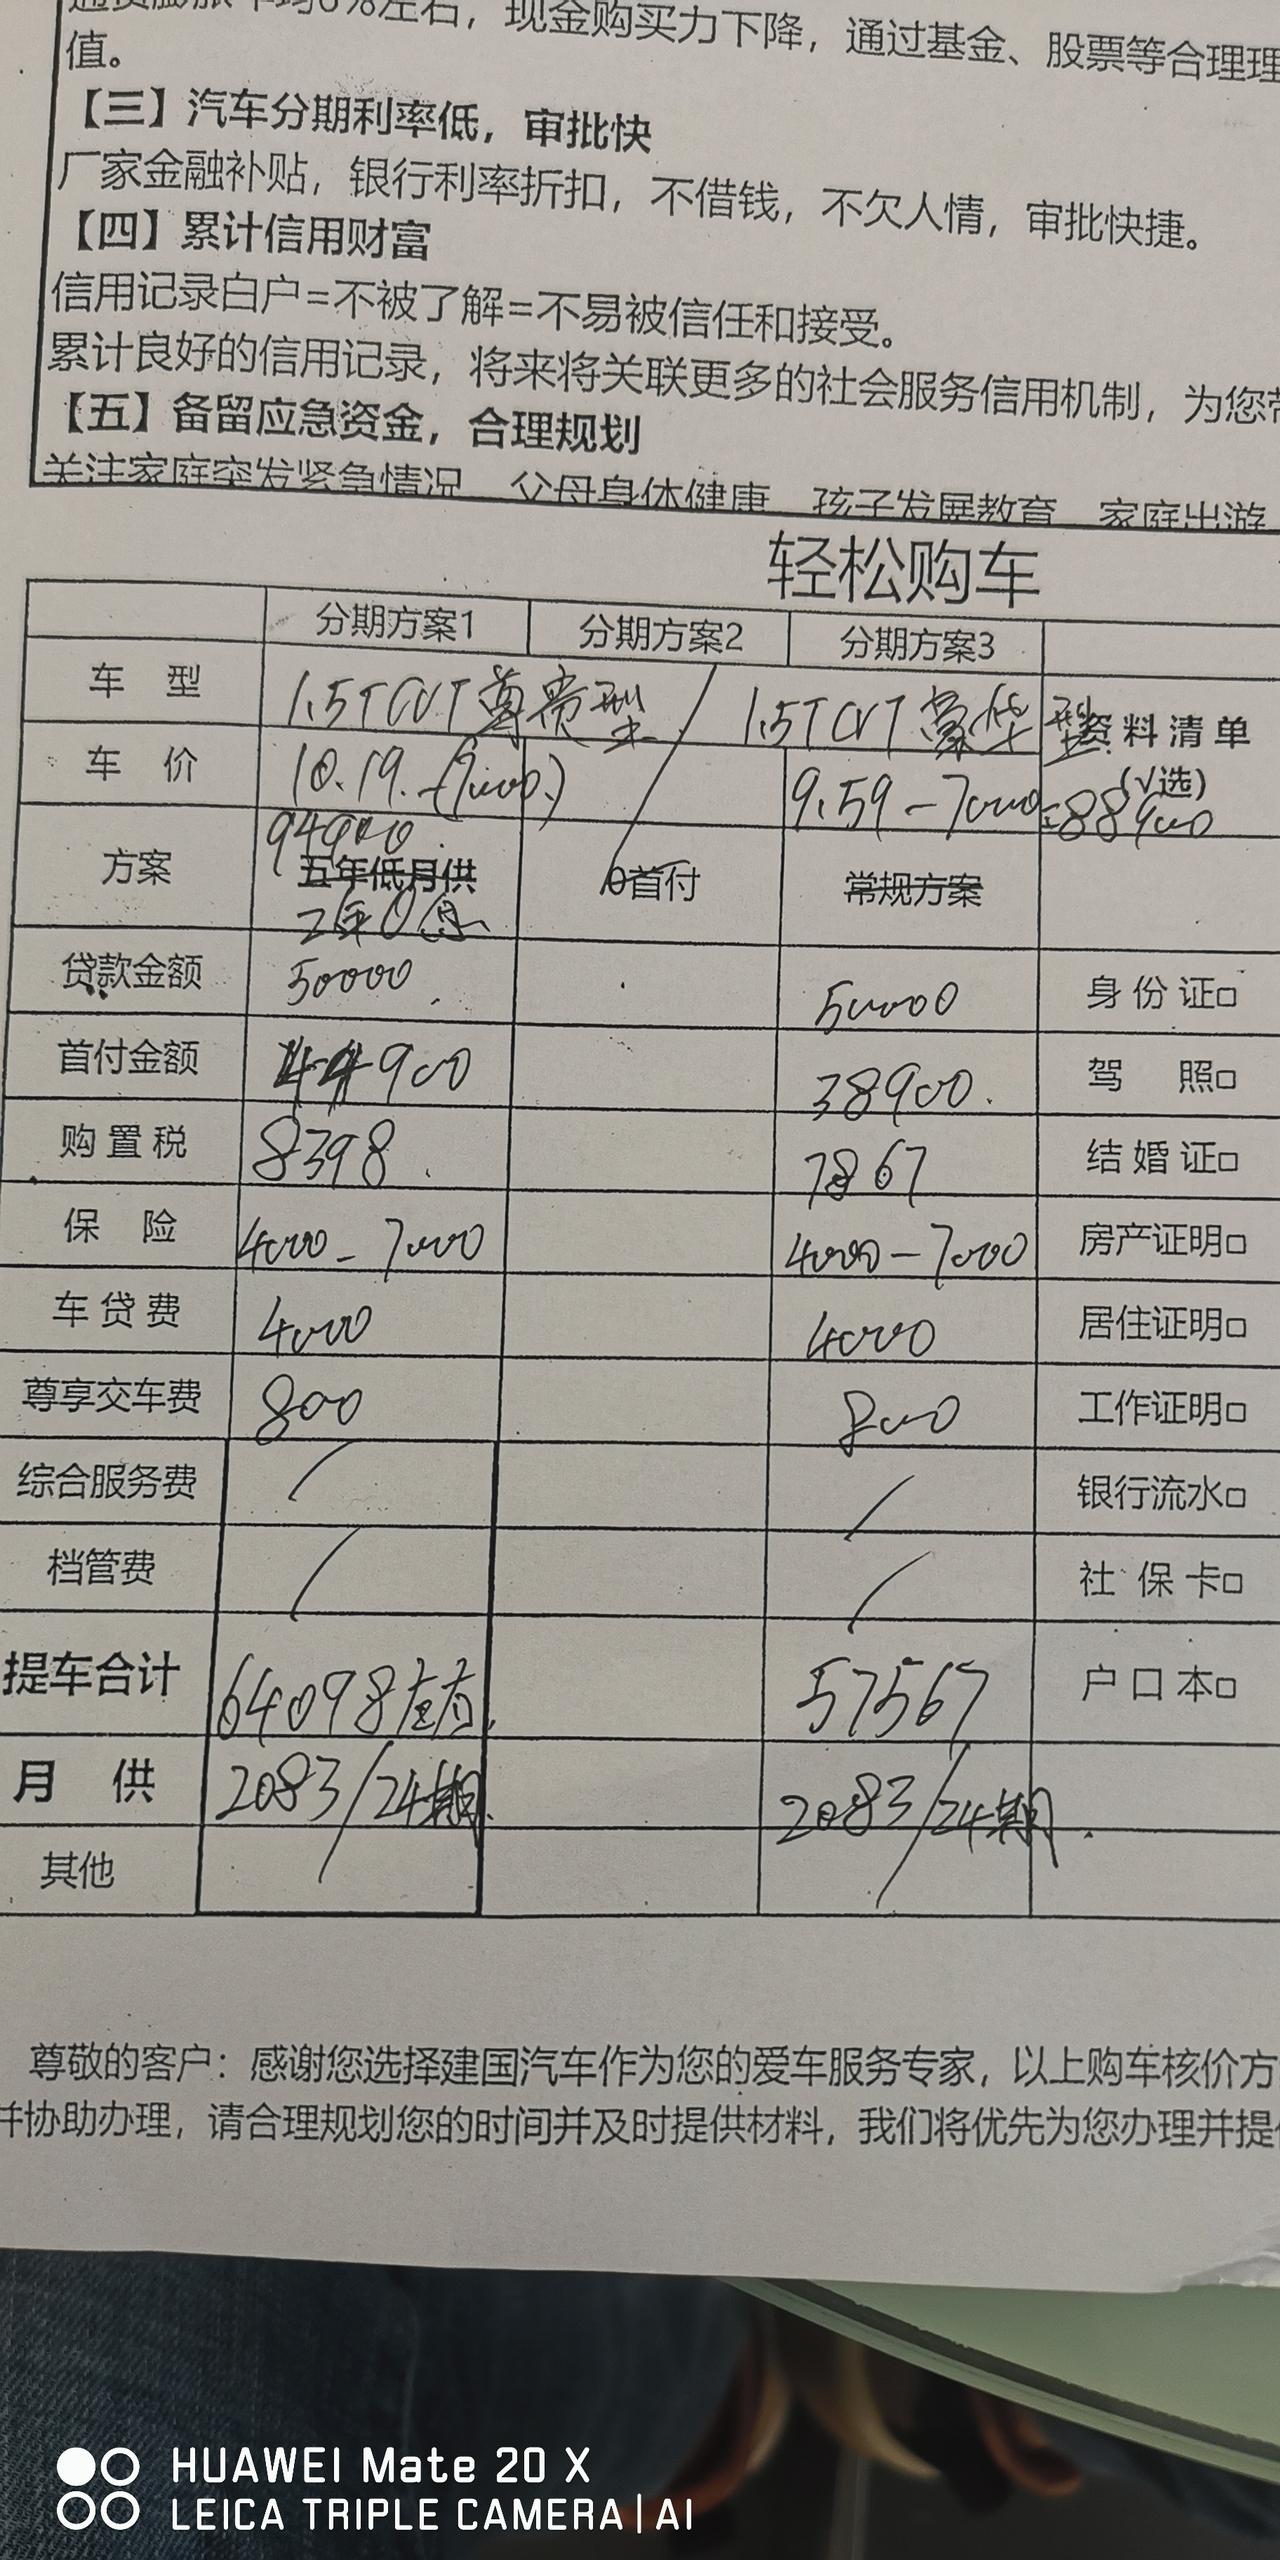 通货膨胀年均6%左右，现金购买力下降，通过基金、股票等合理理
值。
【三】汽车分期利率低，审批快
厂家金融补贴，银行利率折扣，不借钱，不欠人情，审批快捷。
【四】累计信用财富
信用记录白户=不被了解=不易被信任和接受。
累计良好的信用记录，将来将关联更多的社会服务信用机制，为您带
【五】备留应急资金，合理规划
关注家庭突发紧急情况 父母身体健康 孩子发展教育 家庭出游
轻松购车
分期方案1 分期方案2 分期方案3
车型 1.5TCVT尊贵型 1.5TCVT豪华型 资料清单
(√选)
车价 10.19.-(7000.) 9.59-7000=88900
94900
方案 五年低月供 0首付 常规方案
2年0息
贷款金额 50000 50000 身份证□
首付金额 44900 38900. 驾照□
购置税 8398 7867 结婚证□
保险 4000-7000 4000-7000 房产证明□
车贷费 4000 4000 居住证明□
尊享交车费 800 800 工作证明□
综合服务费 / / 银行流水□
档管费 / / 社保卡□
提车合计 64098左右. 57567 户口本□
月供 2083/24期. 2083/24期.
其他
尊敬的客户：感谢您选择建国汽车作为您的爱车服务专家，以上购车核价方
并协助办理，请合理规划您的时间并及时提供材料，我们将优先为您办理并提供
HUAWEI Mate 20 X
LEICA TRIPLE CAMERA | AI